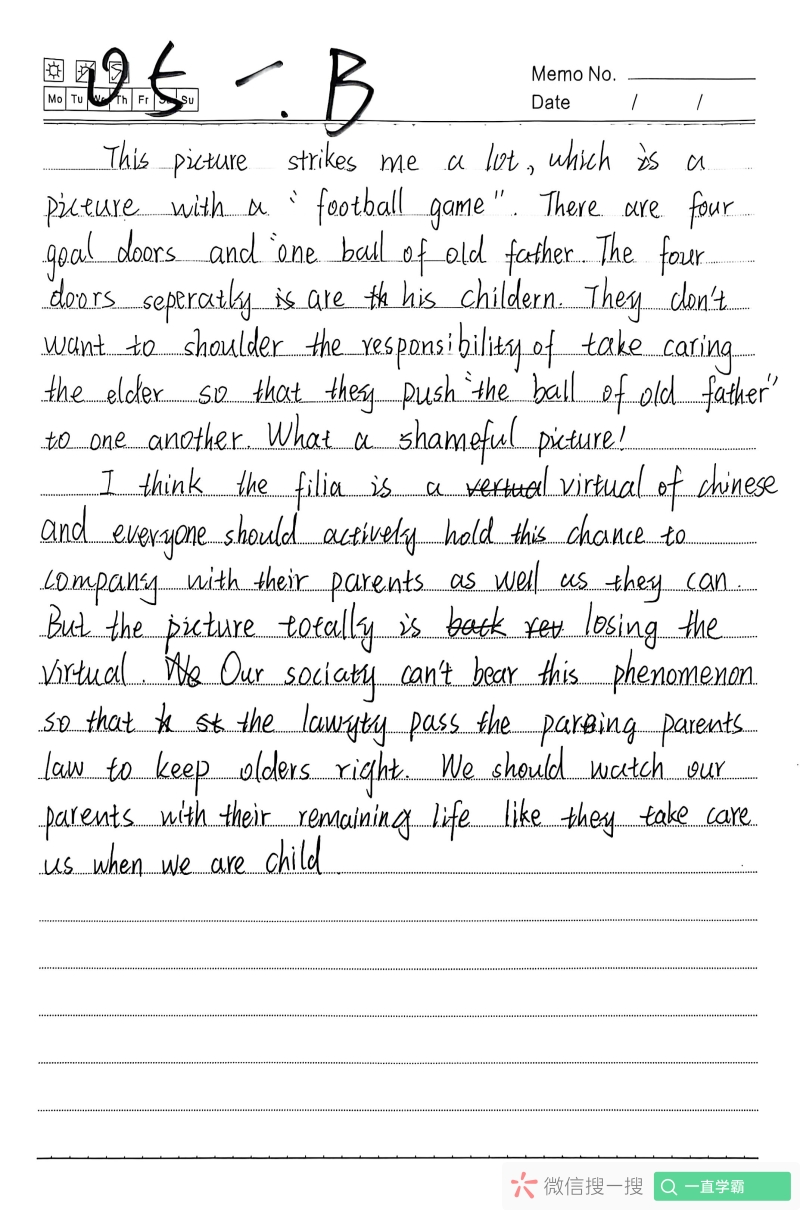 05 一. B
Memo No.
Mo Tu We Th Fr Sa Su
Date / /
This picture strikes me a lot, which is a
picture with a "football game". There are four
goal doors and "one ball of old father. The four
doors seperatly is are th his childern. They don't
want to shoulder the responsibility of take caring
the elder so that they push "the ball of old father"
to one another. What a shameful picture!
I think the filia is a vertual virtual of chinese
and everyone should actively hold this chance to
company with their parents as well as they can.
But the picture totally is back rev losing the
virtual. We Our sociaty can't bear this phenomenon
so that st the lawyty pass the parents
law to keep olders right. We should watch our
parents with their remaining life like they take care
us when we are child.
微信搜一搜
一直学霸